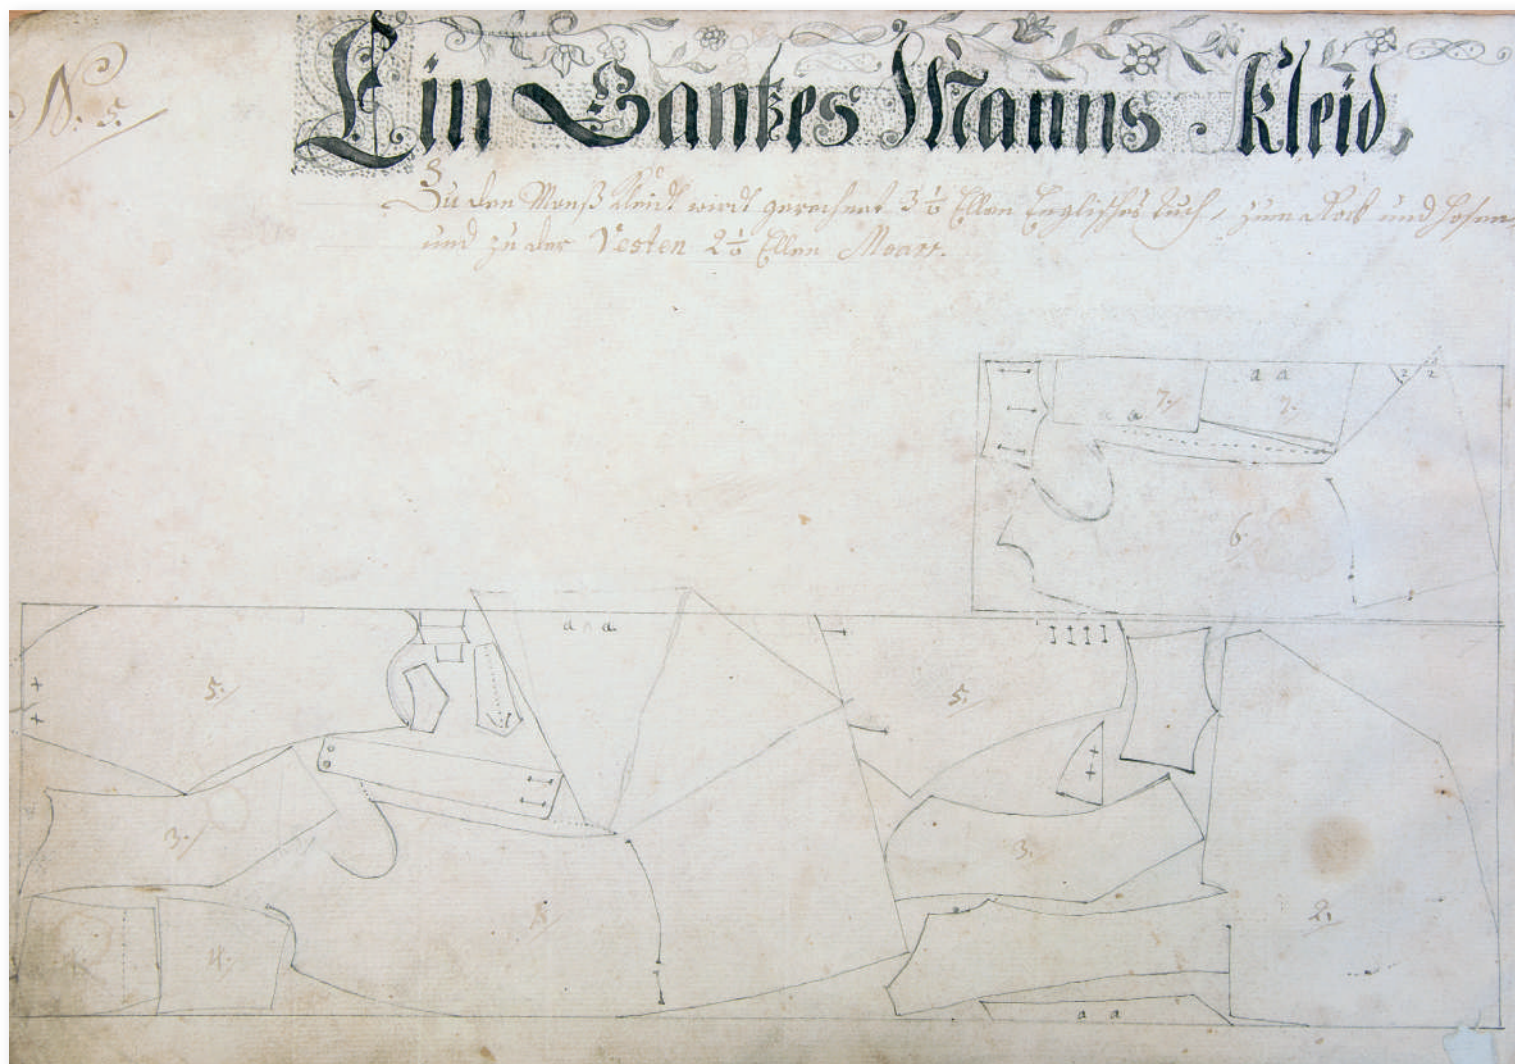 N: 5.
Ein Gantzes Manns Kleid,
Zu den Manß Kleidt wirdt gerechnet 3 1/2 Ellen Englisches tuch, zum Rock und Hosen,
und zu der Vesten 2 1/2 Ellen Moarr.
a a
7.
7.
a
2
2
6.
a a
5.
5.
3.
3.
4.
4.
1.
2.
a a